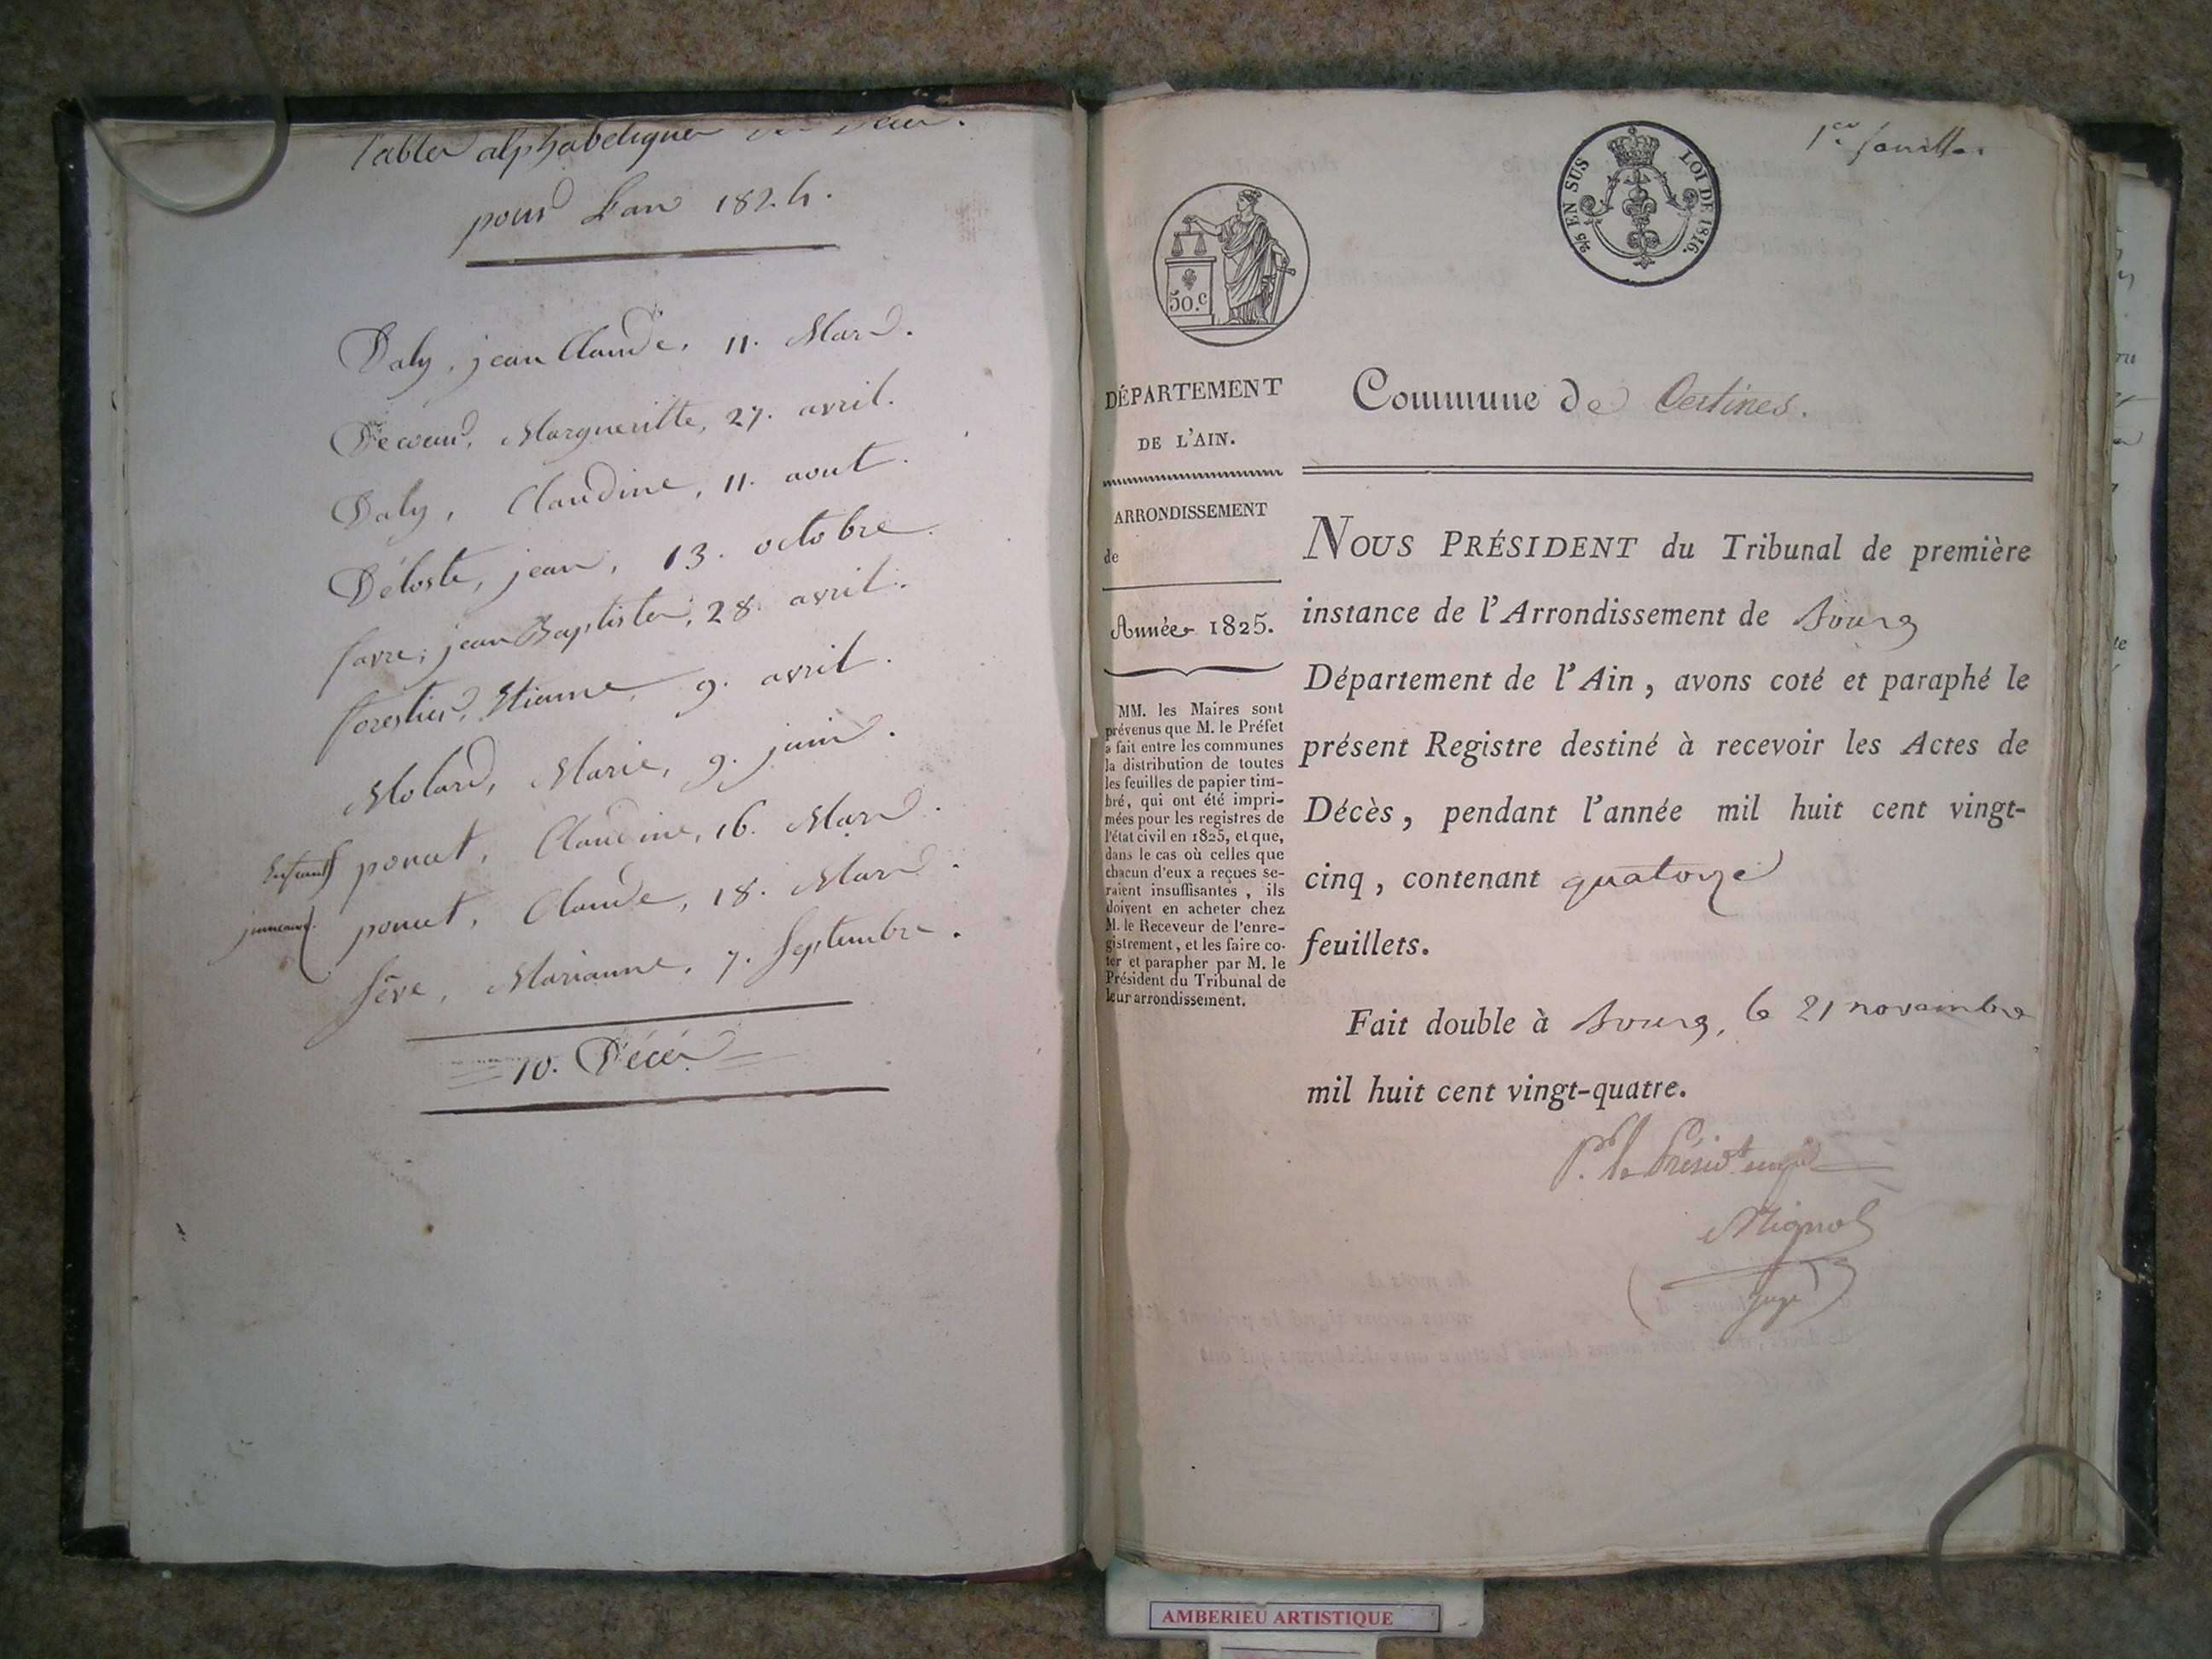 Tables alphabetiques des Décès.
pour L'an 1824.
Daly, jean Claude, 11. Mars.
Margueritte, 27. avril.
Daly, Claudine, 11. aout.
Déloste, jean, 13. octobre.
favre, jean Baptiste, 28. avril.
forestier, Etienne, 9. avril.
Molard, Marie, 9. juin.
Enfants poncet, Claudine, 16. Mars.
jumeaux. poncet, Claude, 18. Mars.
Sève, Marianne, 7. Septembre.
10. Décès
1er feuillet
50.c
2/5 EN SUS
LOI DE 1816.
DÉPARTEMENT
DE L'AIN.
ARRONDISSEMENT
de
Année 1825.
MM. les Maires sont
prévenus que M. le Préfet
a fait entre les communes
la distribution de toutes
les feuilles de papier tim-
bré, qui ont été impri-
mées pour les registres de
l'état civil en 1825, et que,
dans le cas où celles que
chacun d'eux a reçues se-
raient insuffisantes, ils
doivent en acheter chez
M. le Receveur de l'enre-
gistrement, et les faire co-
ter et parapher par M. le
Président du Tribunal de
leur arrondissement.
Commune de Certines.
NOUS PRÉSIDENT du Tribunal de première
instance de l'Arrondissement de Bourg
Département de l'Ain, avons coté et paraphé le
présent Registre destiné à recevoir les Actes de
Décès, pendant l'année mil huit cent vingt-
cinq, contenant quatorze
feuillets.
Fait double à Bourg, le 21 novembre
mil huit cent vingt-quatre.
Pr. le Présidt
juge
AMBERIEU ARTISTIQUE